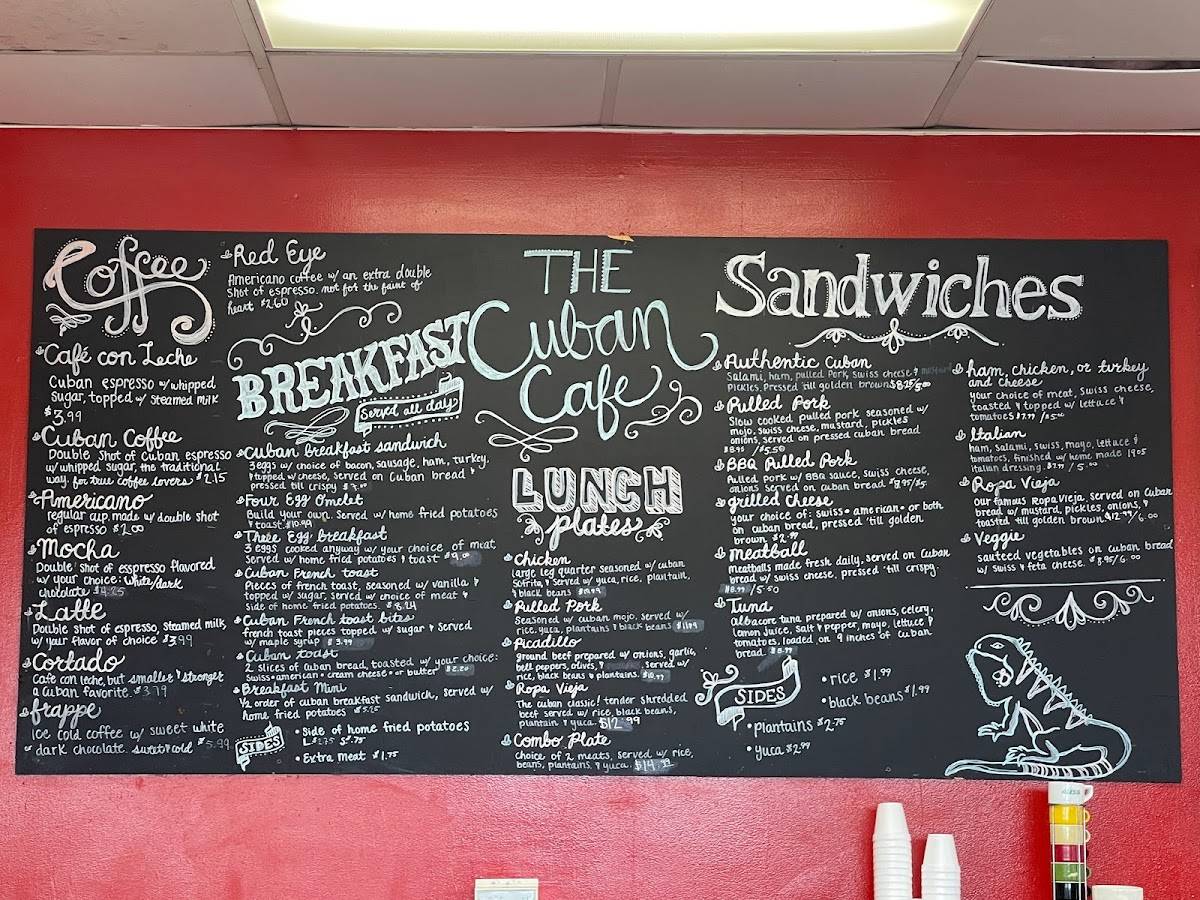 Coffee
Café con Leche
Cuban espresso w/ whipped
Sugar, topped w/ steamed milk
$3.99
Cuban Coffee
Double Shot of Cuban espresso
w/ whipped sugar, the traditional
way. for true coffee lovers $2.15
Americano
regular cup made w/ double shot
of espresso $2.00
Mocha
Double Shot of esspresso flavored
w/ your choice: White/dark
chocolate $4.25
Latte
Double shot of espresso, steamed milk,
w/ your flavor of choice $3.99
Cortado
Cafe con leche, but smaller & stronger
a Cuban favorite. $3.79
frappe
ice cold coffee w/ sweet white
or dark chocolate. sweet & cold $5.99
Red Eye
Americano coffee w/ an extra double
Shot of espresso. not for the faint of
heart $2.60
BREAKFAST
Served all day
Cuban breakfast sandwich
3 eggs w/ choice of bacon, sausage, ham, turkey,
& topped w/ cheese, served on Cuban bread &
pressed till crispy
Four Egg Omelet
Build your own. Served w/ home fried potatoes
& toast. $10.99
Three Egg breakfast
3 eggs cooked anyway w/ your choice of meat
Served w/ home fried potatoes & toast $9.00
Cuban French toast
Slices of french toast, seasoned w/ vanilla &
topped w/ sugar, served w/ choice of meat &
Side of home fried potatoes. $8.24
Cuban French toast bites
french toast pieces topped w/ sugar & served
w/ maple syrup $3.99
Cuban toast
2 slices of Cuban bread, toasted w/ your choice:
Swiss • american • cream cheese • or butter $2.20
Breakfast Mini
½ order of cuban breakfast sandwich, served w/
home fried potatoes $5.25
SIDES
• Side of home fried potatoes
L $2.75 S $1.75
• Extra Meat $1.75
THE
Cuban
Cafe
LUNCH
plates
Chicken
large leg quarter seasoned w/ cuban
Sofrito, & served w/ yuca, rice, plaintain,
& black beans
Pulled Pork
Seasoned w/ cuban mojo. Served w/
rice, yuca, plantains & black beans $11.99
Picadillo
ground beef prepared w/ onions, garlic,
bell peppers, olives, & served w/
rice, black beans & plantains. $10.99
Ropa Vieja
The cuban classic! tender shredded
beef served w/ rice, black beans,
plantain & yuca. $12.99
Combo Plate
Choice of 2 meats, served w/ rice,
beans, plantains, & yuca. $14.99
Sandwiches
Authentic Cuban
Salami, ham, pulled Pork, swiss cheese & mustard
pickles, Pressed 'till golden brown $8.25/5.00
Pulled Pork
Slow cooked pulled pork seasoned w/
mojo. swiss cheese, mustard, pickles
onions, served on pressed cuban bread
$8.95 / $5.50
BBQ Pulled Pork
Pulled pork w/ BBQ sauce, swiss cheese,
onions served on cuban bread $8.95/5.
grilled Cheese
your choice of: swiss • american • or both
on cuban bread, pressed 'till golden
brown $2.99
meatball
meatballs made fresh daily, served on Cuban
bread w/ swiss cheese, pressed 'till crispy.
$8.99 / 5.50
Tuna
albacore tuna prepared w/ onions, celery,
lemon juice, salt & pepper, mayo, lettuce &
tomatoes, loaded on 9 inches of cuban
bread. $8.99
ham, chicken, or turkey
and cheese
your choice of meat, Swiss cheese,
toasted & topped w/ lettuce &
tomatoes $7.99 / 5.00
Italian
ham, salami, swiss, mayo, lettuce &
tomatoes, finished w/ home made 1905
Italian dressing. $7.99 / 5.00
Ropa Vieja
our famous Ropa Vieja, served on Cuban
bread w/ mustard, pickles, onions, &
toasted till golden brown. $12.99/6.00
Veggie
sauteed vegetables on cuban bread
w/ swiss & feta cheese. $8.95/6.00
SIDES
• rice $1.99
• black beans $1.99
• plantains $2.75
• yuca $2.99